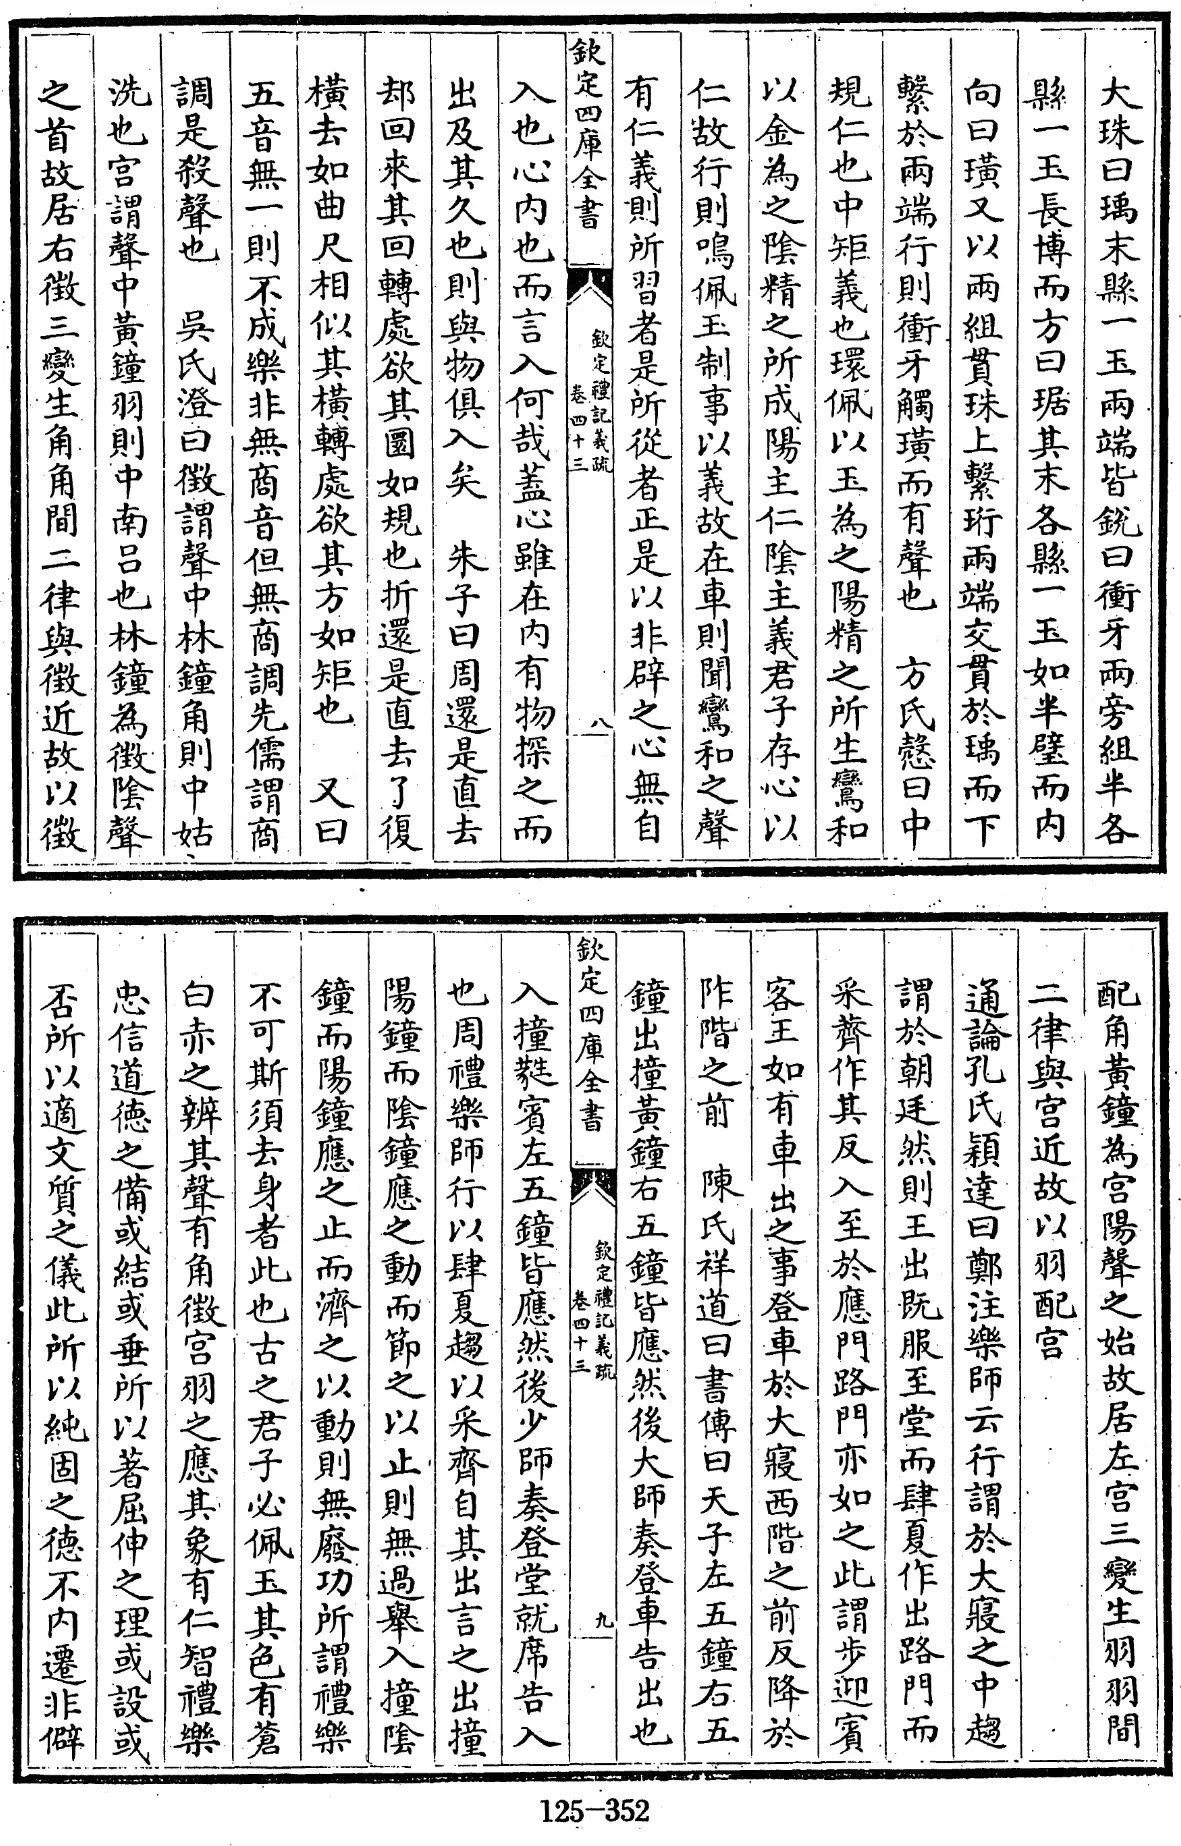 大珠曰瑀末縣一玉兩端皆銳曰衝牙兩旁組半各
縣一玉長博而方曰琚其末各縣一玉如半璧而内
向曰璜又以兩組貫珠上繫珩兩端交貫於瑀而下
繫於兩端行則衝牙觸璜而有聲也　方氏慤曰中
規仁也中矩義也環佩以玉為之陽精之所生鸞和
以金為之陰精之所成陽主仁陰主義君子存心以
仁故行則鳴佩玉制事以義故在車則聞鸞和之聲
有仁義則所習者是所從者正是以非辟之心無自
欽定四庫全書
欽定禮記義疏
卷四十三
八
入也心内也而言入何哉蓋心雖在内有物探之而
出及其久也則與物俱入矣　朱子曰周還是直去
却回來其回轉處欲其圜如規也折還是直去了復
橫去如曲尺相似其橫轉處欲其方如矩也　又曰
五音無一則不成樂非無商音但無商調先儒謂商
調是殺聲也　吳氏澄曰徵謂聲中林鐘角則中姑
洗也宮謂聲中黃鐘羽則中南呂也林鐘為徵陰聲
之首故居右徵三變生角角間二律與徵近故以徵
配角黃鐘為宮陽聲之始故居左宮三變生羽羽間
二律與宮近故以羽配宮
通論孔氏穎達曰鄭注樂師云行謂於大寢之中趨
謂於朝廷然則王出既服至堂而肆夏作出路門而
采薺作其反入至於應門路門亦如之此謂步迎賓
客王如有車出之事登車於大寢西階之前反降於
阼階之前　陳氏祥道曰書傳曰天子左五鐘右五
鐘出撞黃鐘右五鐘皆應然後大師奏登車告出也
欽定四庫全書
欽定禮記義疏
卷四十三
九
入撞蕤賓左五鐘皆應然後少師奏登堂就席告入
也周禮樂師行以肆夏趨以采齊自其出言之出撞
陽鐘而陰鐘應之動而節之以止則無過舉入撞陰
鐘而陽鐘應之止而濟之以動則無廢功所謂禮樂
不可斯須去身者此也古之君子必佩玉其色有蒼
白赤之辨其聲有角徵宮羽之應其象有仁智禮樂
忠信道德之備或結或垂所以著屈伸之理或設或
否所以適文質之儀此所以純固之德不内遷非僻
125-352